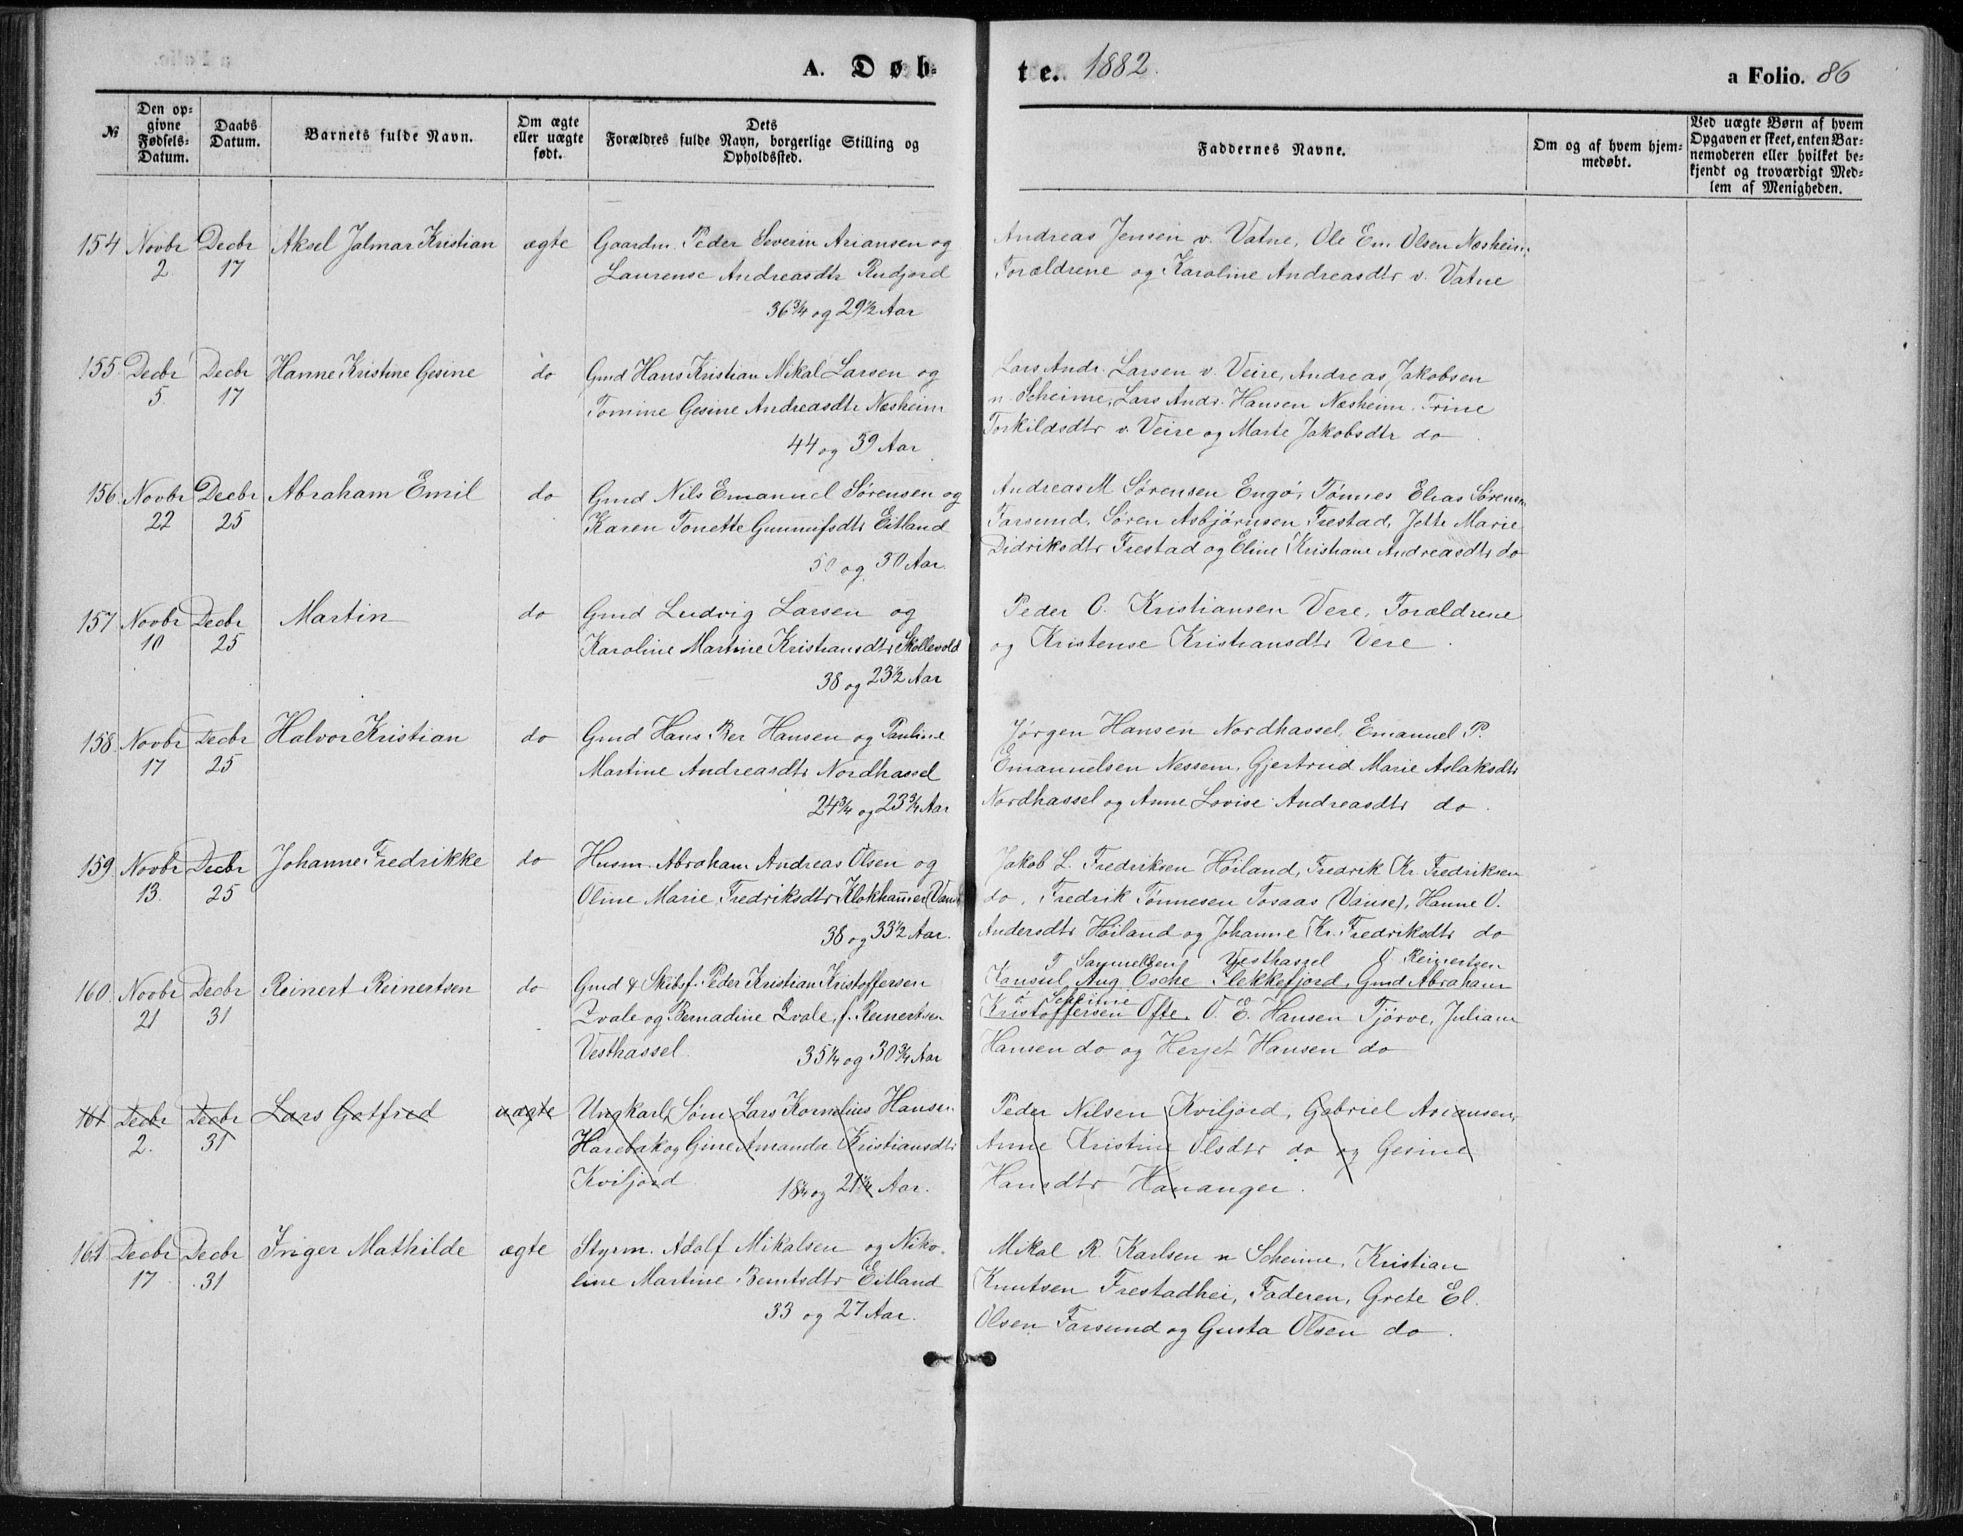 A. Døbte. 1882. a Folio. 86
№ Den opgivne Fødsels-Datum. Daabs Datum. Barnets fulde Navn. Om ægte eller uægte født. Forældres fulde Navn, borgerlige Stilling og Dets Opholdssted. Faddernes Navne. Om og af hvem hjemmedøbt. Ved uægte Børn af hvem Opgaven er skeet, enten Barnemoderen eller hvilket bekjendt og troværdigt Medlem af Menigheden.
154 Novbr 2 Decbr 17 Aksel Jalmar Kristian ægte Gaardm. Peder Severin Ariansen og
Laurense Andreasdtr Rudjord
36 3/4 og 29 1/2 Aar
Andreas Jensen v. Vatne, Ole Em. Olsen Næsheim
Forældrene og Karoline Andreasdtr v. Vatne
155 Decbr 5. Decbr 17 Hanne Kristine Gesine do Gmd Hans Kristian Mikal Larsen og
Tomine Gesine Andreasdtr Næsheim
44 og 39 Aar
Lars Andr. Larsen v. Veire, Andreas Jakobsen
n. Scheime, Lars Andr. Hansen Næsheim. Trine
Torkildsdtr v. Veire og Marte Jakobsdtr do
156 Novbr 22 Decbr 25 Abraham Emil do Gmd Nils Emanuel Sørensen og
Karen Tonette Gunnufsdtr Eitland
50 og 30 Aar.
Andreas M Sørensen Engø, Tønnes Elias Sørensen
Farsund, Søren Asbjørnsen Frestad, Jette Marie
Didriksdtr Frestad og Eline Kristiane Andreasdtr do
157 Novbr 10 Decbr 25 Martin do Gmd Ludvig Larsen og
Karoline Martine Kristiansdtr Skollevold
38 og 23 1/2 Aar
Peder O. Kristiansen Vere, Forældrene
og Kristense Kristiansdtr Vere.
158 Novbr 17 Decbr 25 Halvor Kristian do Gmd Hans Ber Hansen og Pauline
Martine Andreasdtr Nordhassel
24 3/4 og 23 3/4 Aar
Jørgen Hansen Nordhassel, Emanuel P.
Emanuelsen Nessem, Gjertrud Marie Aslaksdtr
Nordhassel og Anne Lovise Andreasdtr do.
159 Novbr 13. Decbr 25 Johanne Fredrikke do Husm. Abraham Andreas Olsen og
Oline Marie Fredriksdtr Klokhammer (Vanse)
38 og 33 1/2 Aar.
Jakob L. Fredriksen Høiland, Fredrik Kr. Fredriksen
do, Fredrik Tønnesen Tosaas (Vanse), Hanne O.
Andersdtr Høiland og Johanne Kr. Fredriksdtr do
160 Novbr 21 Decbr 31 Reinert Reinertsen do Gmd & Skibsf. Peder Kristian Kristoffersen
Qvale og Bernadine Qvale, f. Reinertsen
Vesthassel. 35 1/4 og 30 3/4 Aar
T Samuelsen Vesthassel O Reinertsen
Konsul Aug Esche Flekkefjord, Gmd Abraham
ø Scheime
Kristoffersen Ofte. O. E. Hansen Tjørve, Juliane
Hansen do og Herjet Hansen do
161 Decbr 2. Decbr 31 Lars Gotfred uægte Ungkarl, Søm. Lars Kornelius Hansen
Harebak og Gine Amanda Kristiansdtr
Kviljord 18 1/4 og 21 1/4 Aar.
Peder Nilsen Kviljord, Gabriel Ariansen,
Anne Kristine Olsdtr do og Gesine
Hansdtr Hananger.
161 Decbr 17 Decbr 31 Inger Mathilde ægte Styrm. Adolf Mikalsen og Niko-
line Martine Berntsdtr Eitland
33 og 27 Aar.
Mikal R. Karlsen n Scheime, Kristian
Knutsen Frestadhei, Faderen, Grete El.
Olsen Farsund og Gusta Olsen do.